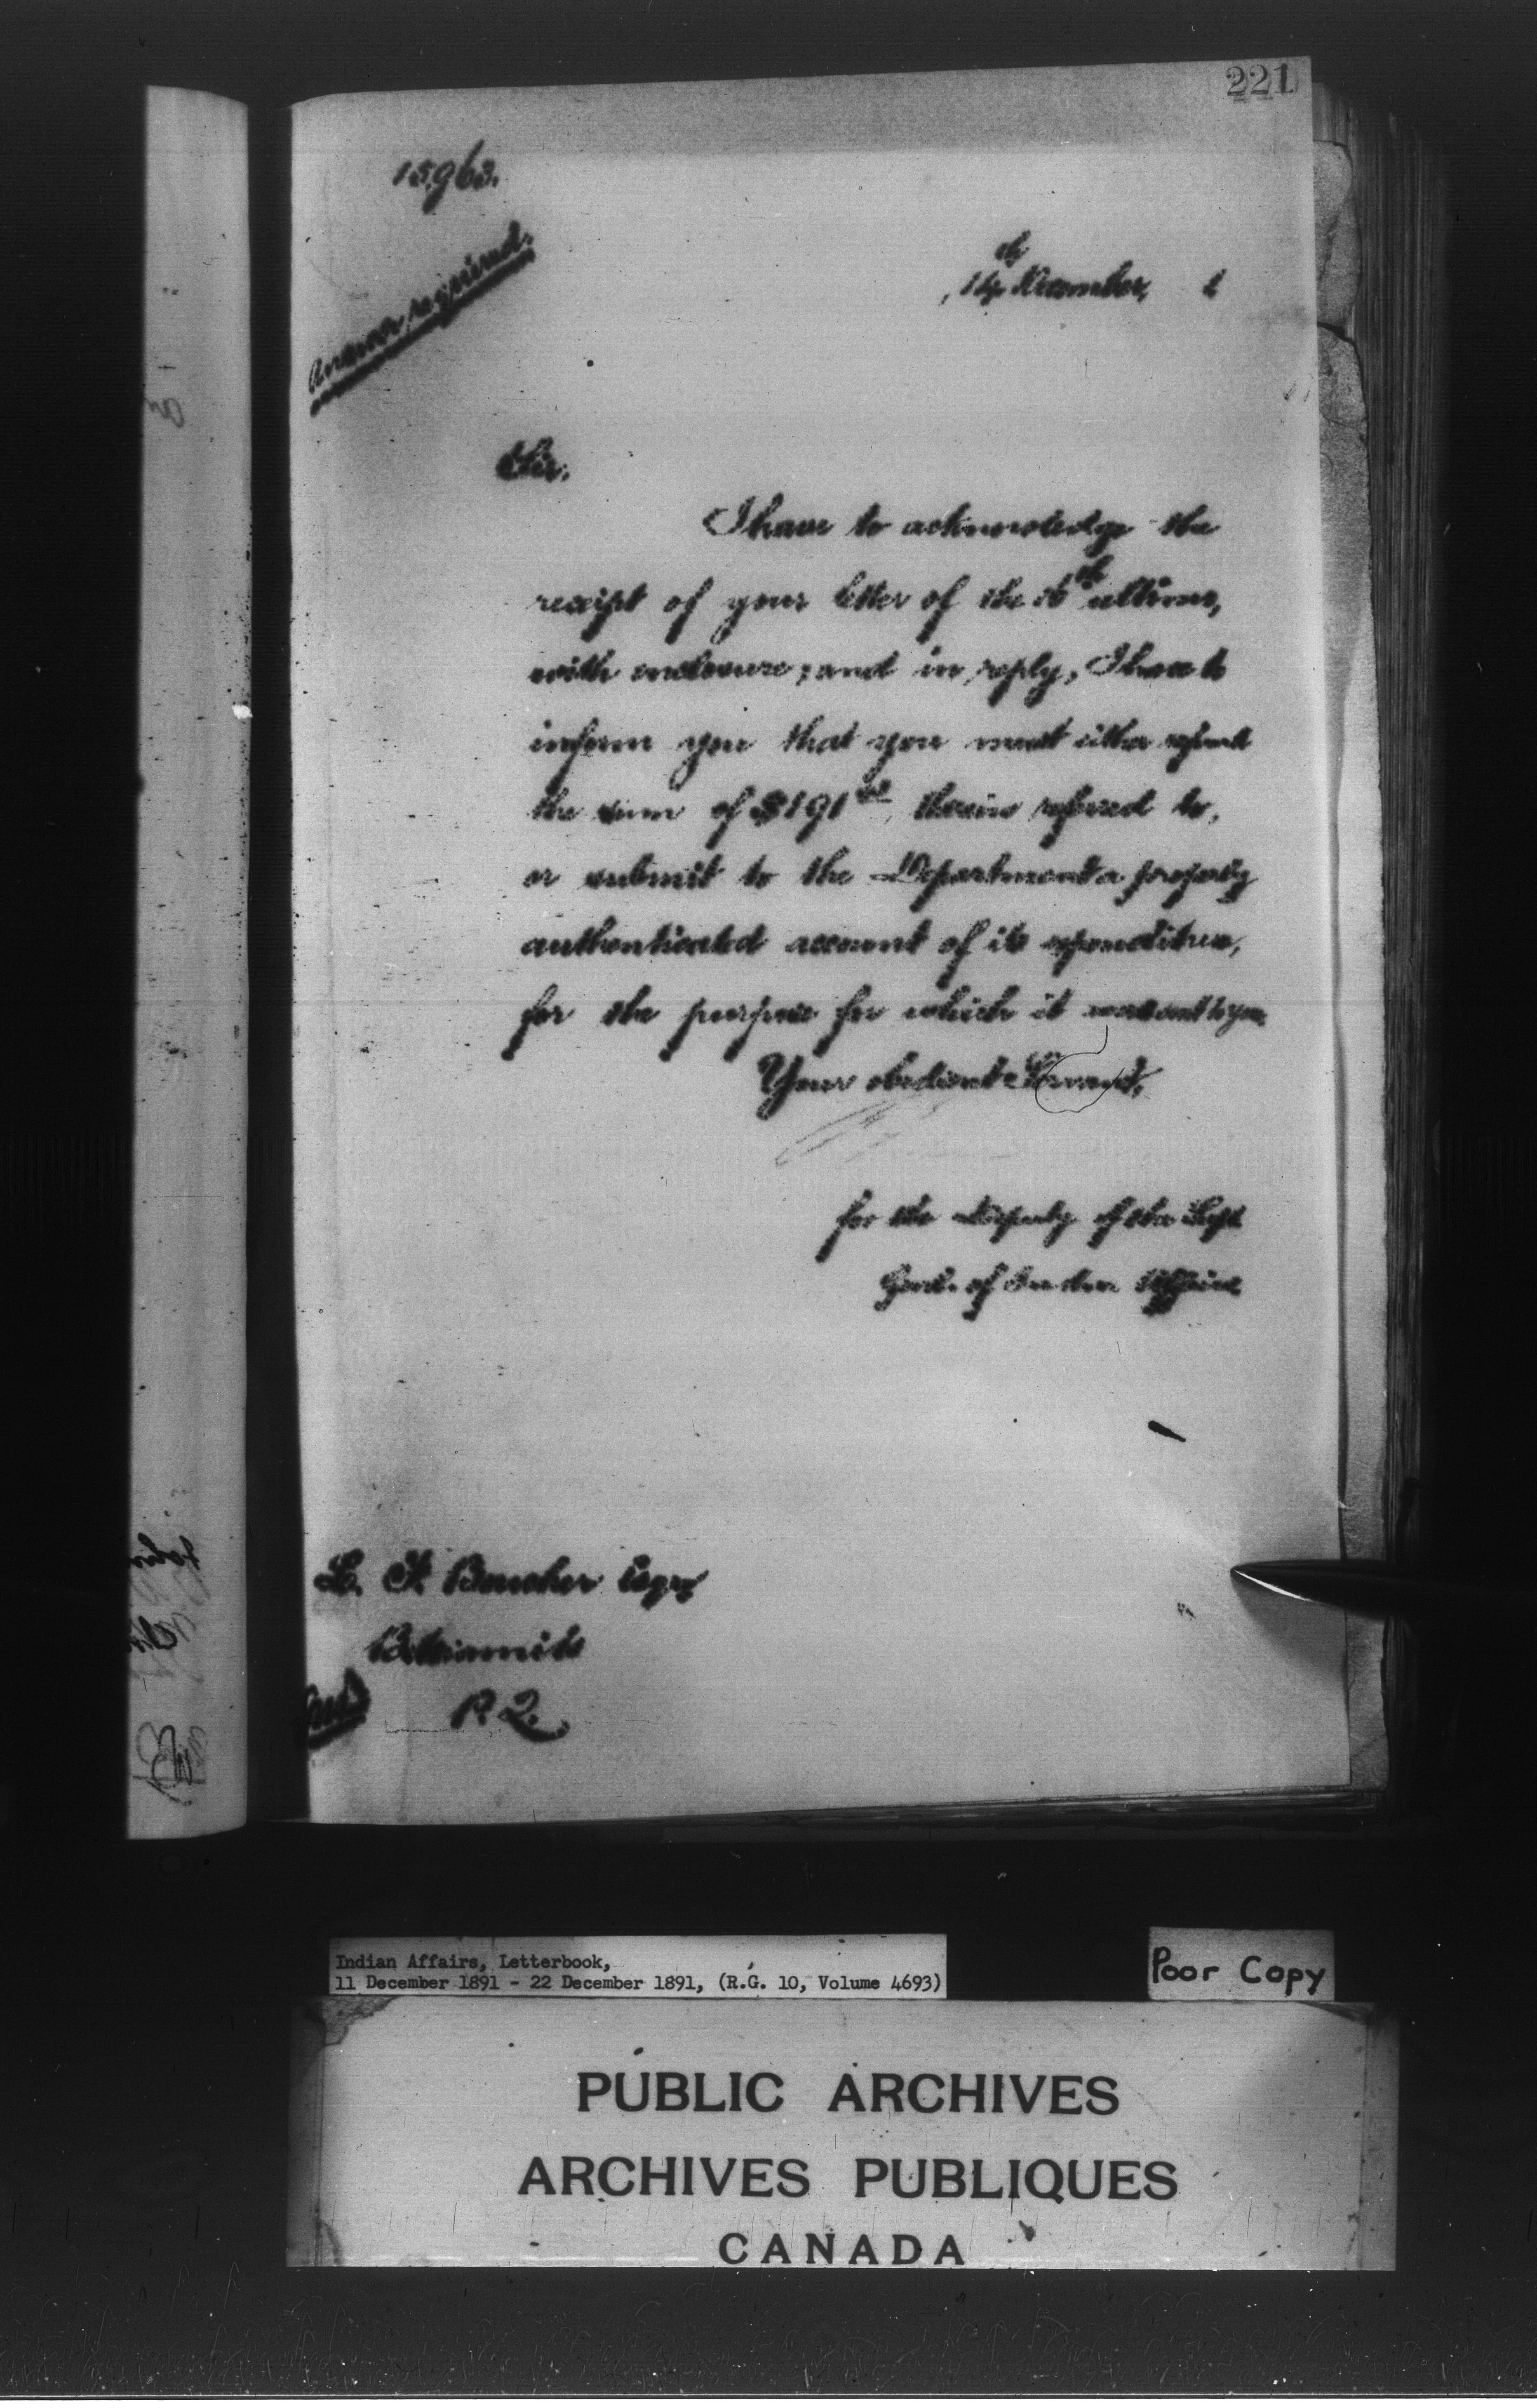 221
15963.
Answer required.
14th December, 1
Sir,
I have to acknowledge the
receipt of your letter of the ultimo,
with enclosure; and in reply, I have to
inform you that you must either refund
the sum of $191 therein referred to,
or submit to the Department a properly
authenticated account of its expenditure,
for the purpose for which it was sent to you.
Your obedient Servant,
for the Deputy of the Supt
Genl. of Indian Affairs
L. F. Boucher Esqre
Betsiamits
P. Q.
Indian Affairs, Letterbook,
11 December 1891 - 22 December 1891, (R.G. 10, Volume 4693)
Poor Copy
PUBLIC ARCHIVES
ARCHIVES PUBLIQUES
CANADA